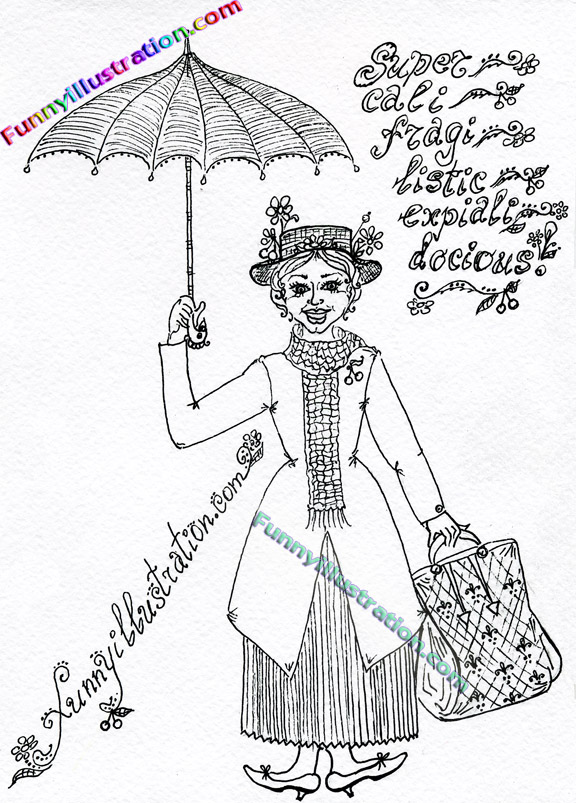 Funnyillustration.com
Super
cali
fragi
listic
expiali
docious!
Funnyillustration.com
Funnyillustration.com